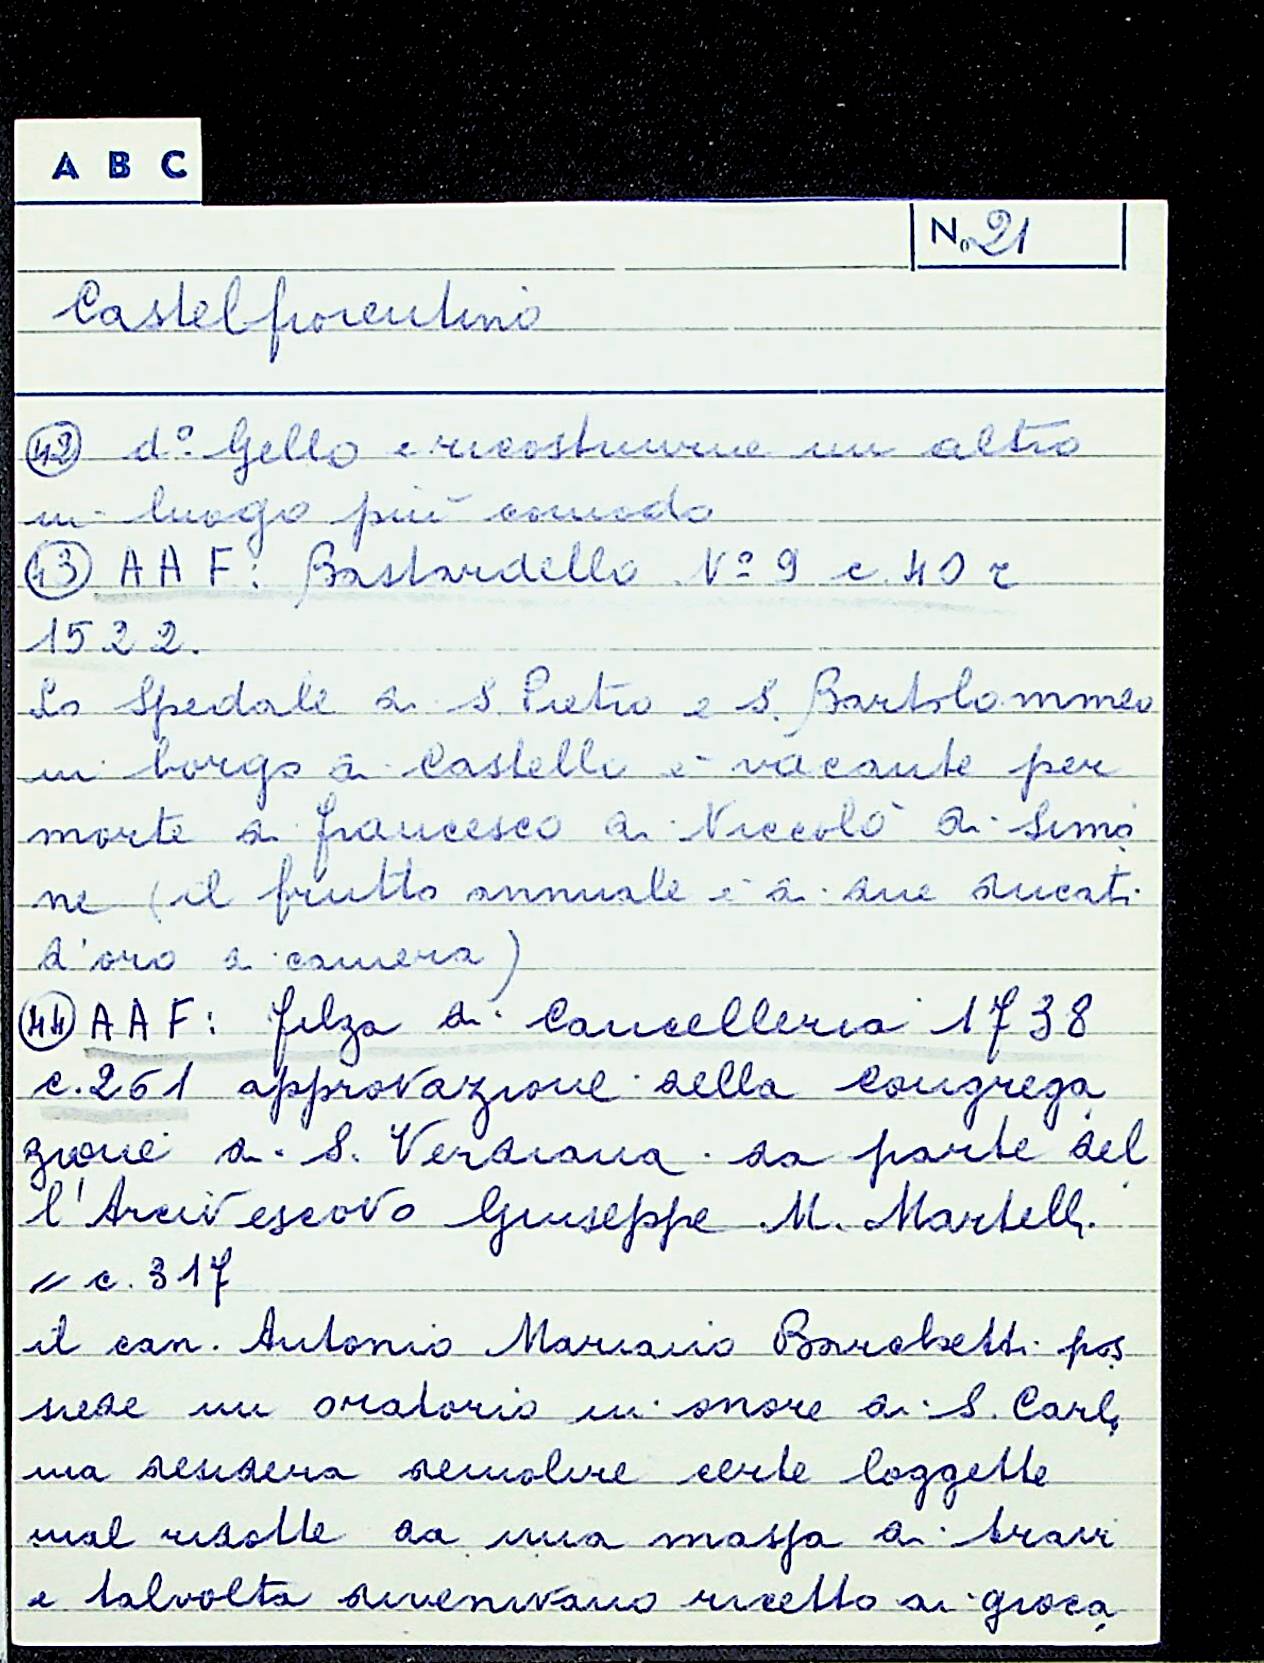 A B C
N. 21
Castelfiorentino
42 d.º Gello e ricostruirne un altro
in luogo più comodo
43 A A F: Bastardello Nº 9 c. 40 r
1522.
Lo Spedale di S. Pietro e S. Bartolommeo
in borgo di Castello è vacante per
morte di Francesco di Niccolò di Simo
ne (il frutto annuale è di due ducati
d'oro di camera)
44 A A F: filza di Cancelleria 1738
c. 261 approvazione della Congrega
zione di S. Verdiana da parte del
l'Arcivescovo Giuseppe M. Martelli
" c. 317
il can. Antonio Mariano Barchetti pos
siede un oratorio in onore di S. Carlo
ma desidera demolire certe loggette
mal ridotte da una massa di travi
e talvolta divenivano ricetto di gioca